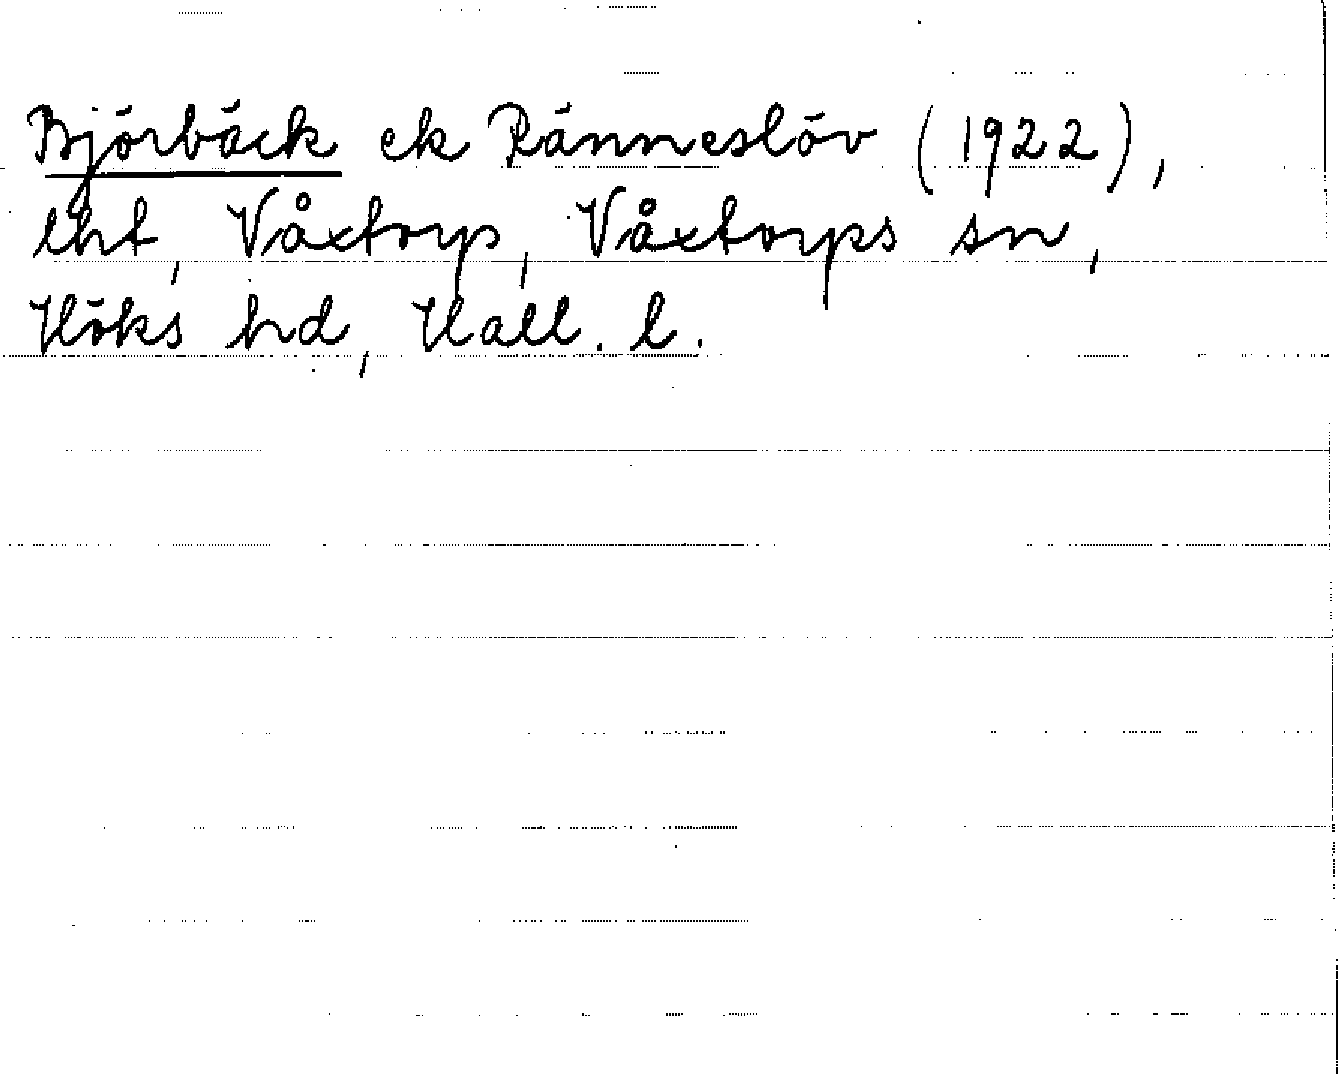 Björbäck ek Ränneslöv (1922),
lht, Våxtorp, Våxtorps sn,
Höks hd, Hall. l.